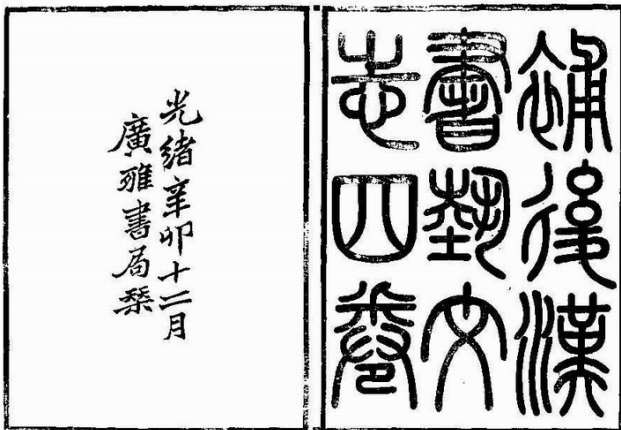 補後漢
書藝文
志四卷
光緒辛卯十二月
廣雅書局栞